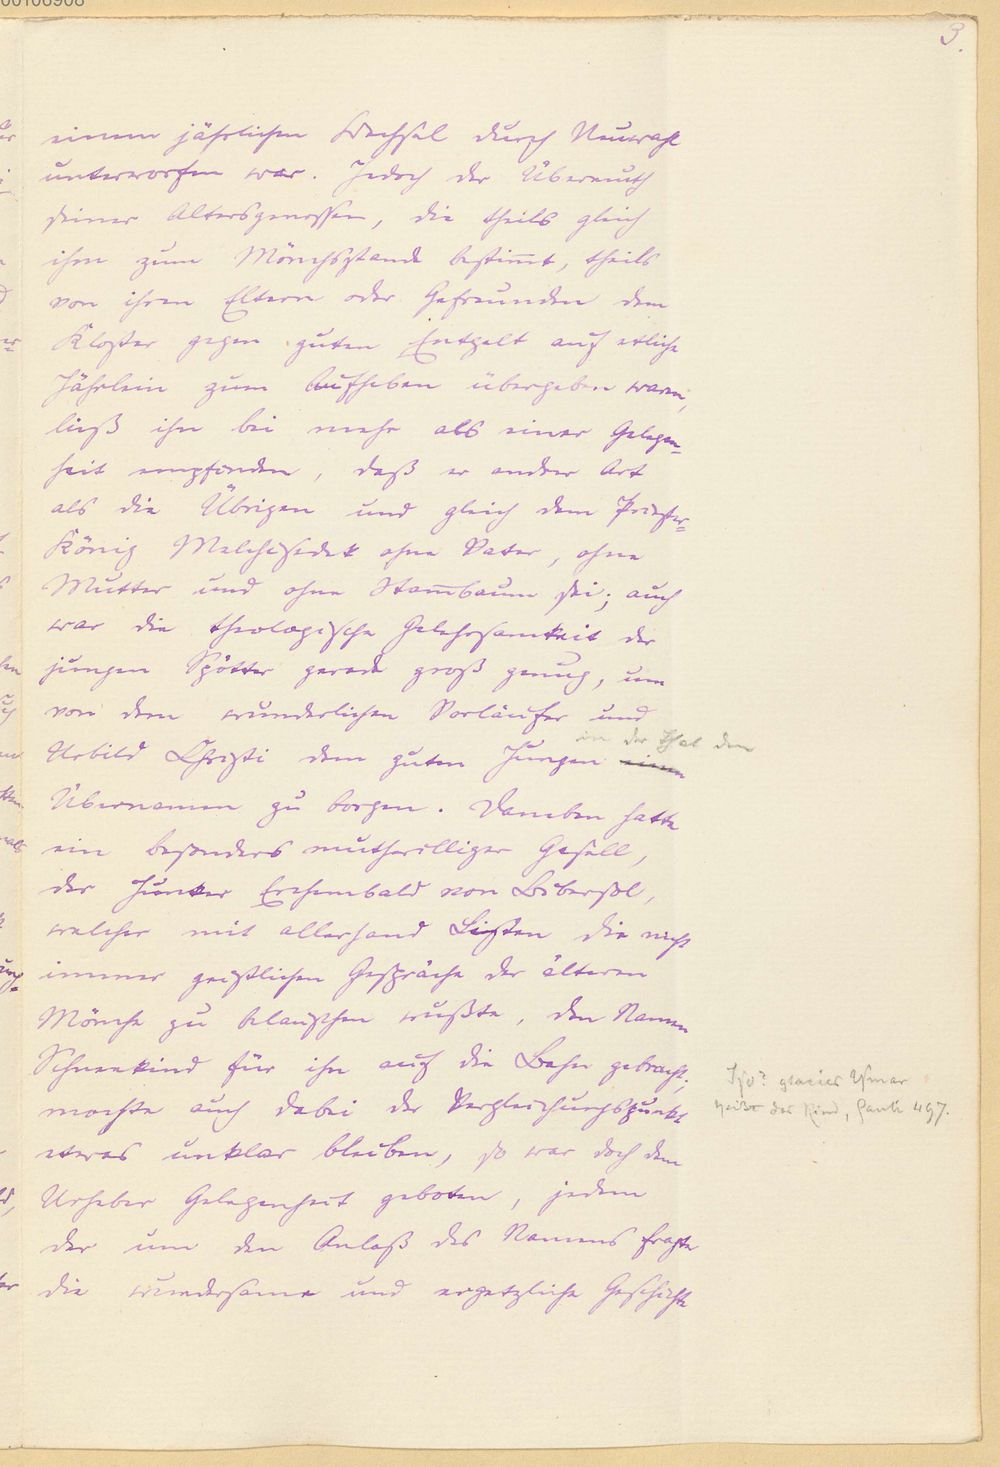 3.
einem jährlichen Wechsel durch Neuwahl
unterworfen war. Jedoch der Übermuth
seiner Altersgenossen, die theils gleich
ihm zum Mönchsstande bestimmt, theils
von ihren Eltern oder Gefreunden dem
Kloster gegen guten Entgelt auf etliche
Jährlein zum Aufheben übergeben waren,
ließ ihn bei mehr als einer Gelegen-
heit empfinden, daß er andrer Art
als die Übrigen und gleich dem Priester-
König Melchisedek ohne Vater, ohne
Mutter und ohne Stammbaum sei; auch
war die theologische Gelehrsamkeit der
jungen Spötter gerade groß genug, um
von dem wunderlichen Vorläufer und
in der That den
Urbild Christi dem guten Jungen einen
Übernamen zu borgen. Daneben hatte
ein besonders muthwilliger Gesell,
der Junker Erchembald von Bibersol,
welcher mit allerhand Listen die nicht
immer geistlichen Gespräche der älteren
Mönche zu belauschen wußte, den Namen
Schneekind für ihn auf die Bahn gebracht;
mochte auch dabei der Vergleichungspunkt
etwas unklar bleiben, so war doch dem
Urheber Gelegenheit geboten, jedem
der um den Anlaß des Namens fragte
die wundersame und ergetzliche Geschichte
glacies
heißt das Kind, 497.